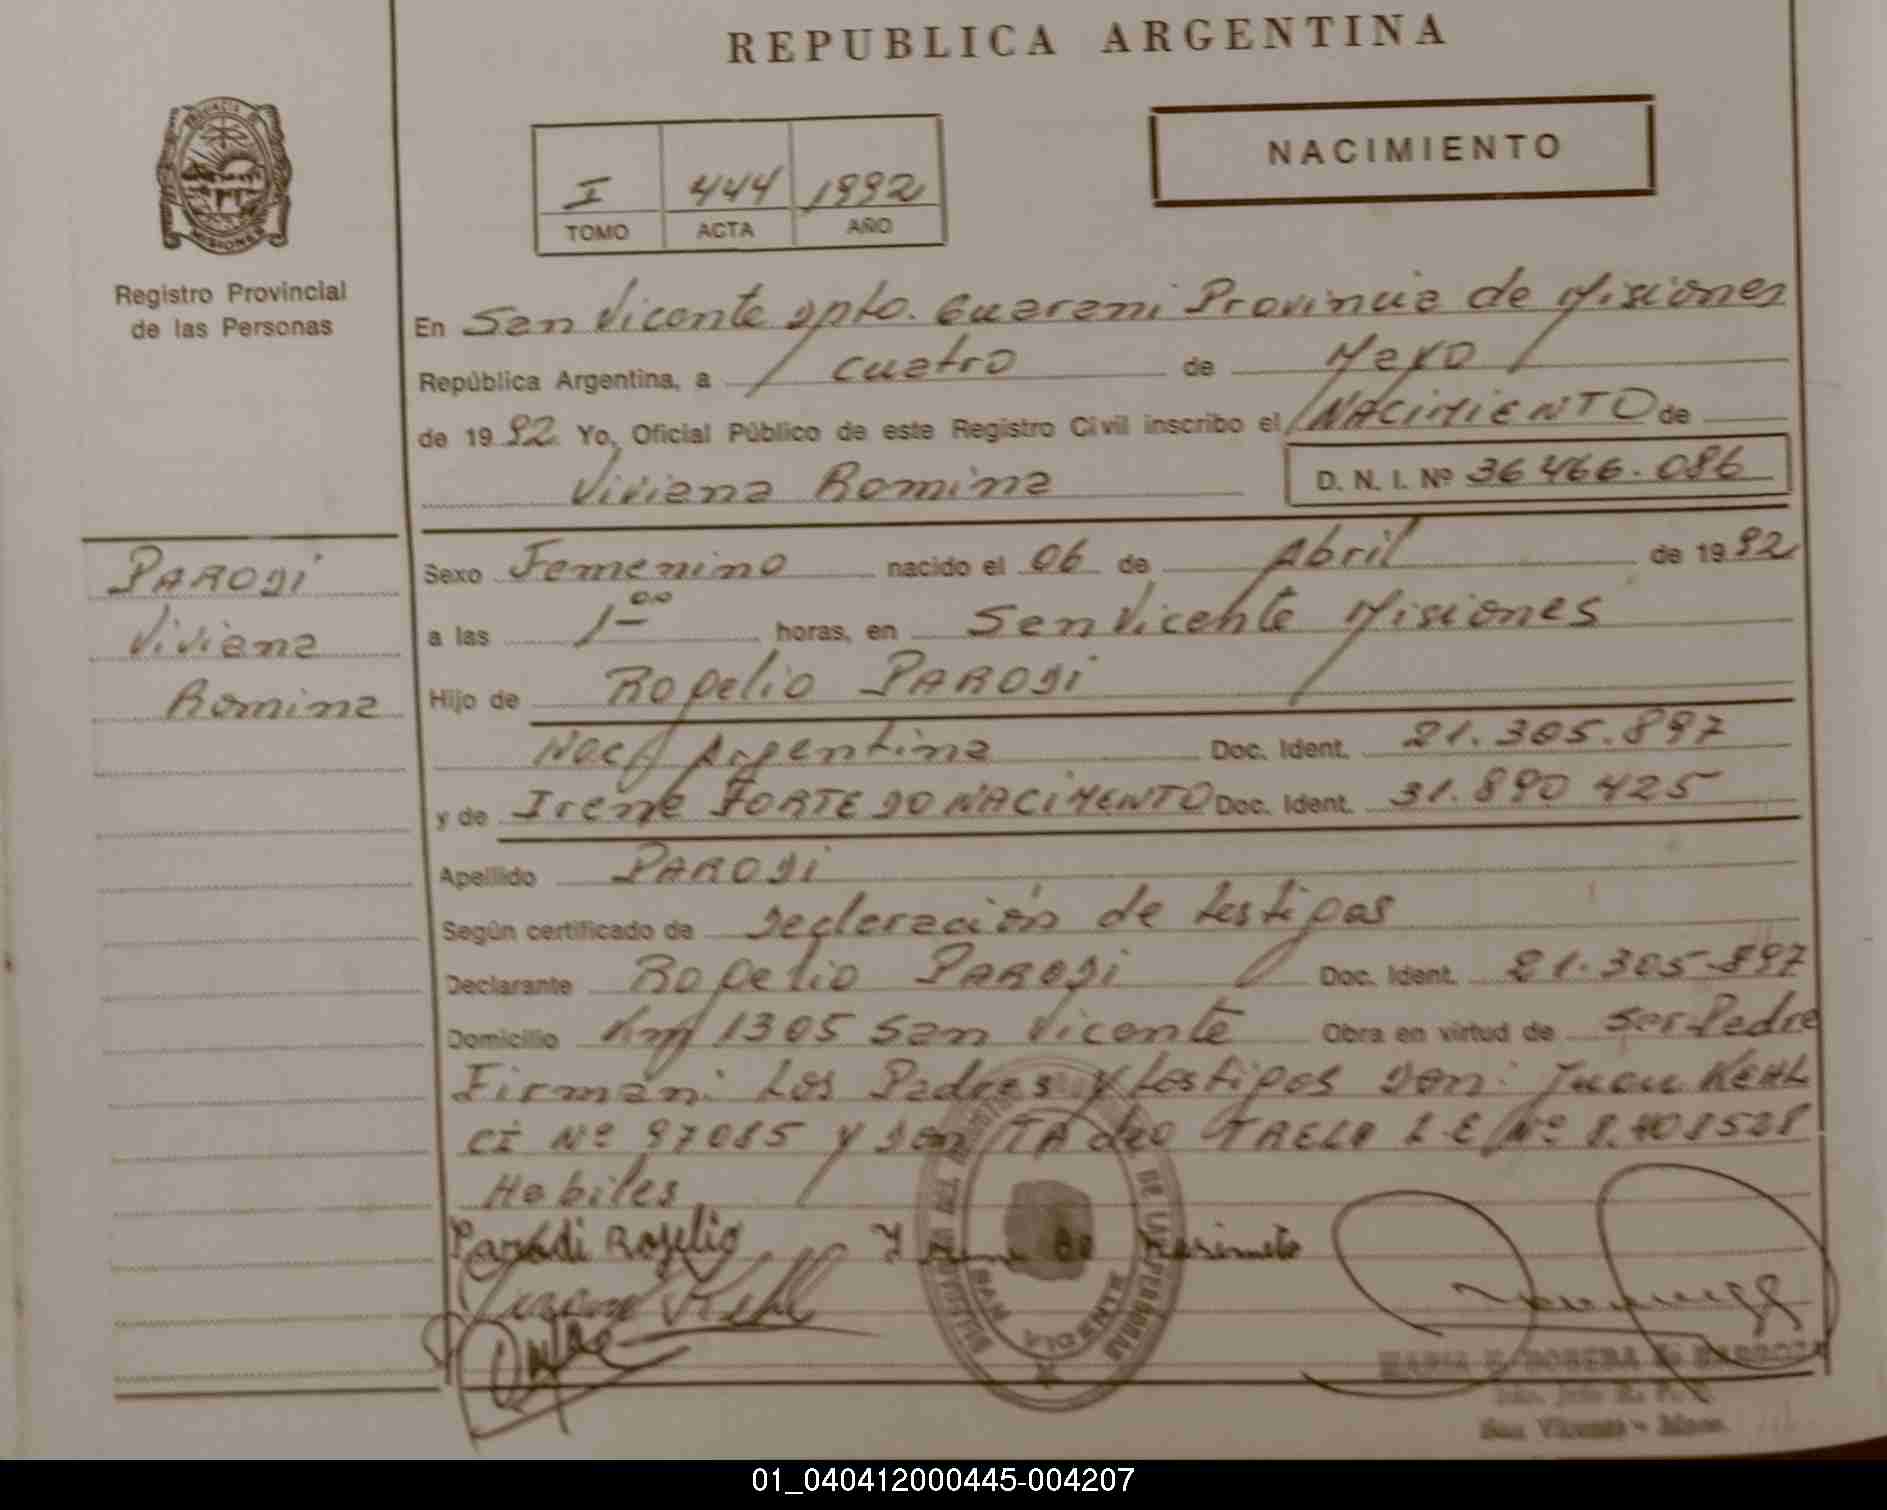 REPUBLICA ARGENTINA
NACIMIENTO
I 444 1992
TOMO ACTA AÑO
MISIONES
Registro Provincial
de las Personas
En San Vicente Dpto. Guarani Provincia de Misiones
República Argentina, a cuatro de Mayo
de 1992 Yo, Oficial Público de este Registro Civil inscribo el NACIMIENTO de
Viviana Romina D. N. I. Nº 36466.086
PARODi
Viviana
Romina
Sexo Femenino nacido el 06 de Abril de 1992
a las 1 00 horas, en San Vicente Misiones
Hijo de Rogelio PARODi
Nac Argentina Doc. Ident. 21.305.897
y de Irene FORTE DO NACIMENTO Doc. Ident. 31.890 425
Apellido PARODi
Según certificado de Declaración de testigos
Declarante Rogelio PARODi Doc. Ident. 21.305.897
Domicilio Km 1305 San Vicente Obra en virtud de ser Padre
Firman: Los Padres y testigos Don: Juan KEHL
CI Nº 97085 y Don TAdeo L E Nº 8.408528
Habiles
Parodi Rogelio
Juan Kehl
San Vicente - Mnes.
01_040412000445-004207